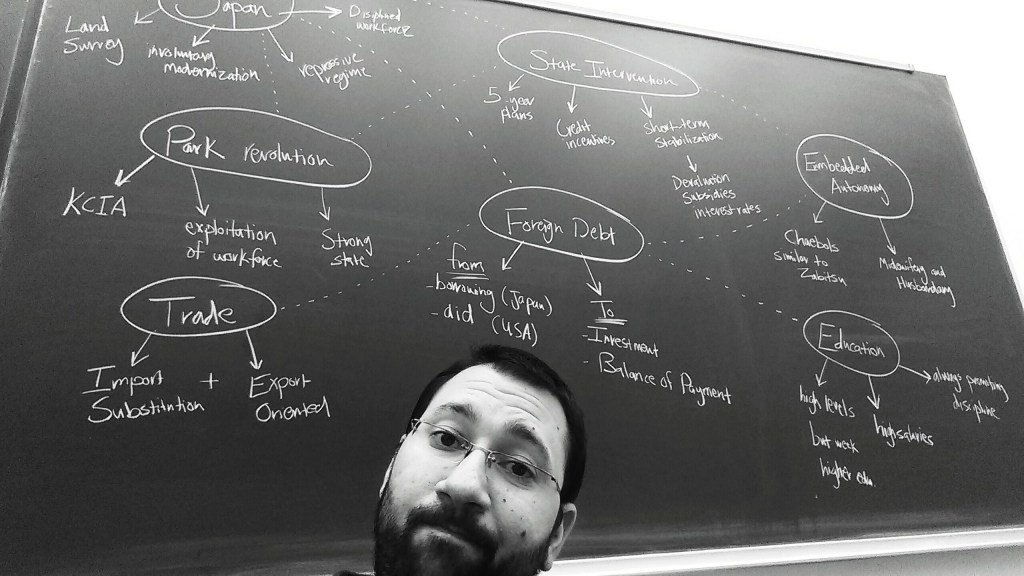 Japan
Land
Survey
involuntary
modernization
repressive
regime
Disiplined
workforce
State Intervention
5-year
plans
Credit
incentives
Short-term
Stabilization
Devaluation
Subsidies
interest rates
Park revolution
KCIA
exploitation
of workforce
Strong
state
Embedded
Autonomy
Chaebols
similar to
Zabitsu
Midwifery and
Husbandary
Foreign Debt
from
-borrowing (Japan)
- did (USA)
To
-Investment
- Balance of Payment
Trade
Import +
Substitution
Export
Oriented
Education
high levels
but weak
higher edu.
high salaries
always promoting
discipline